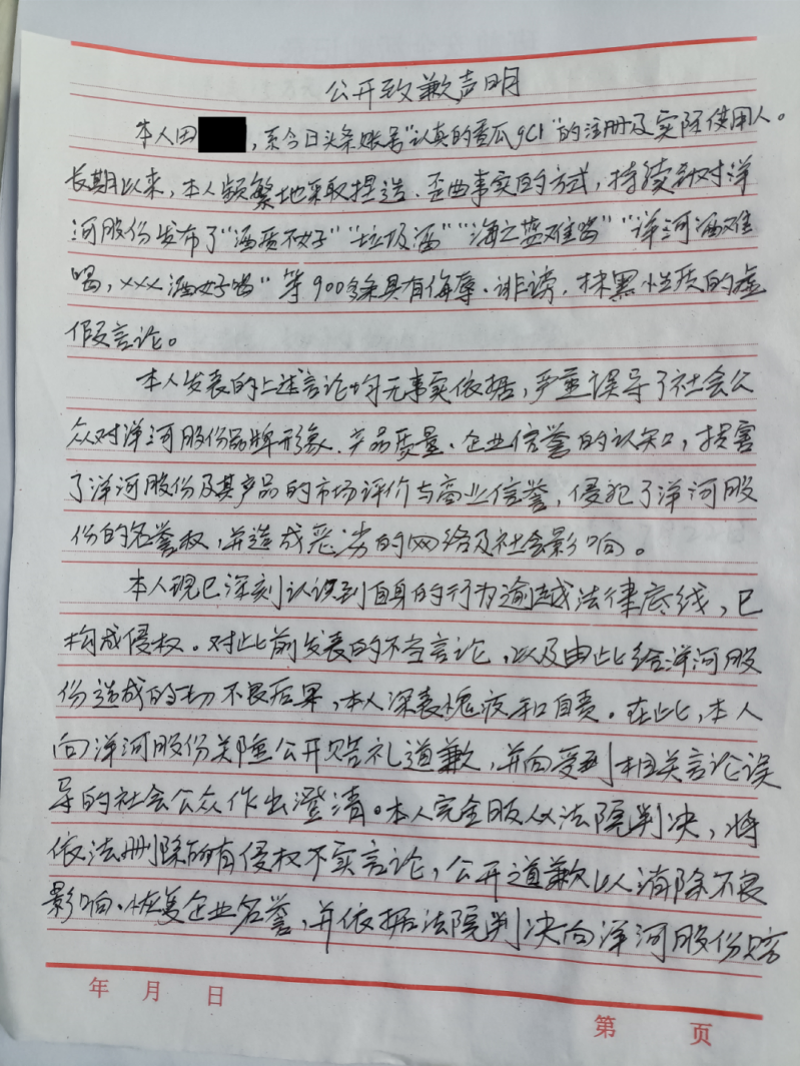 公开致歉声明
本人田，系今日头条账号“认真的蛋瓜gCl”的注册及实际使用人。
长期以来，本人频繁地采取捏造、歪曲事实的方式，持续针对洋
河股份发布了“酒质不好”“垃圾酒”“海之蓝难喝”“洋河酒难
喝，xxx酒好喝”等900余条具有侮辱、诽谤，抹黑性质的虚
假言论。
本人发表的上述言论均无事实依据，严重误导了社会公
众对洋河股份品牌形象、产品质量、企业信誉的认知，损害
了洋河股份及其产品的市场评价与商业信誉，侵犯了洋河股
份的名誉权，并造成恶劣的网络及社会影响。
本人现已深刻认识到自身的行为逾越法律底线，已
构成侵权。对此前发表的不当言论，以及由此给洋河股
份造成的一切不良后果，本人深表愧疚和自责。在此，本人
向洋河股份郑重公开赔礼道歉，并向受到相关言论误
导的社会公众作出澄清。本人完全服从法院判决，将
依法删除所有侵权不实言论，公开道歉以消除不良
影响、恢复企业名誉，并依据法院判决向洋河股份赔
年 月 日
第 页